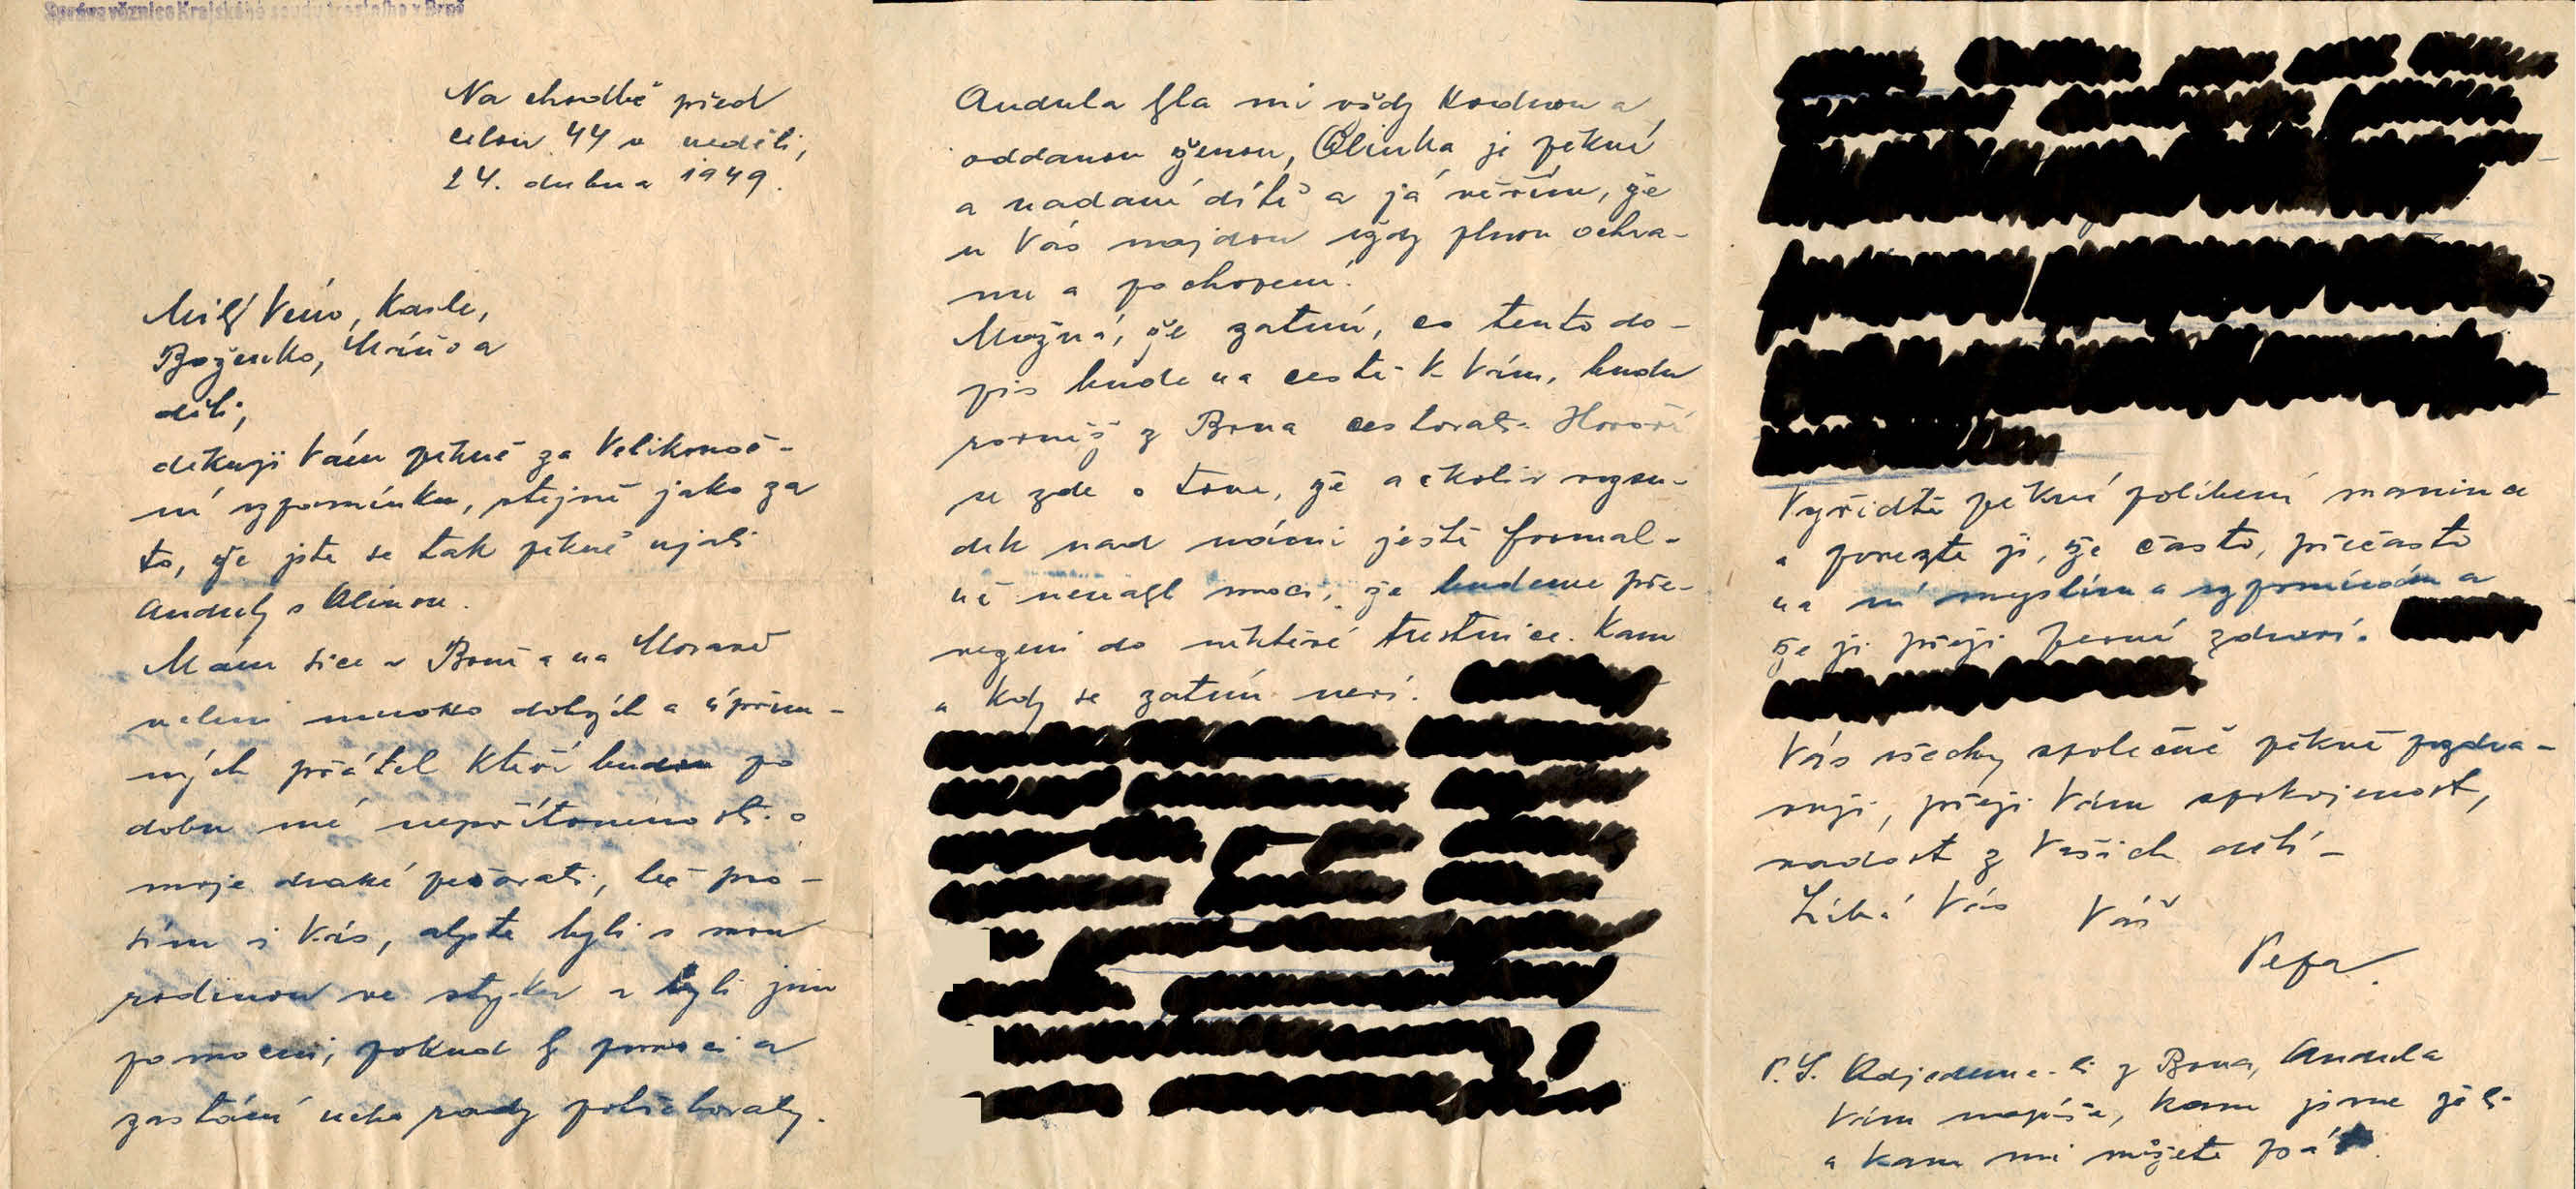 Správa věznice Krajského soudu trestního v Brně
Na chodbě před
celou 44 v neděli,
24. dubna 1949.
Milý Véno, Karle,
Boženko, Máňo a
děti,
děkuji Vám pěkně za Velikonoč-
ní vzpomínku, stejně jako za
to, že jste se tak pěkně ujali
Anduly s Alinou.
Mám sice v Brně a na Moravě
velmi mnoho dobrých a upřím-
ných přátel kteří budou po
dobu mé nepřítomnosti o
moje drahé pečovati, leč pro-
sím i Vás, abyste byli s mou
rodinou ve styku a byli jim
pomocni, pokud by pomoci a
zastání nebo rady potřebovaly.
Andula byla mi vždy hodnou a
oddanou ženou, Alinka je pěkné
a nadané dítě a já věřím, že
u Vás najdou vždy plnou ochra-
nu a pochopení.
Možná, že zatím, co tento do-
pis bude na cestě k Vám, budu
rovněž z Brna cestovati. Hovoří
se zde o tom, že ačkoliv rozsu-
dek nad námi ještě formál-
ně nenabyl moci, že budeme pře-
vezeni do některé trestnice. Kam
a kdy se zatím neví.
Vyřiďte pěkné políbení
a povězte jí, že často, přečasto
na ní myslím a vzpomínám a
že jí přeji pevné zdraví.
Vás všechny společně pěkně pozdra-
vuji, přeji Vám spokojenost,
radost z Vašich dětí -
Líbá Vás Váš
Pepa.
P.S. Odjedeme-li z Brna, Andula
Vám napíše, kam jsme jeli
a kam mi můžete psát.